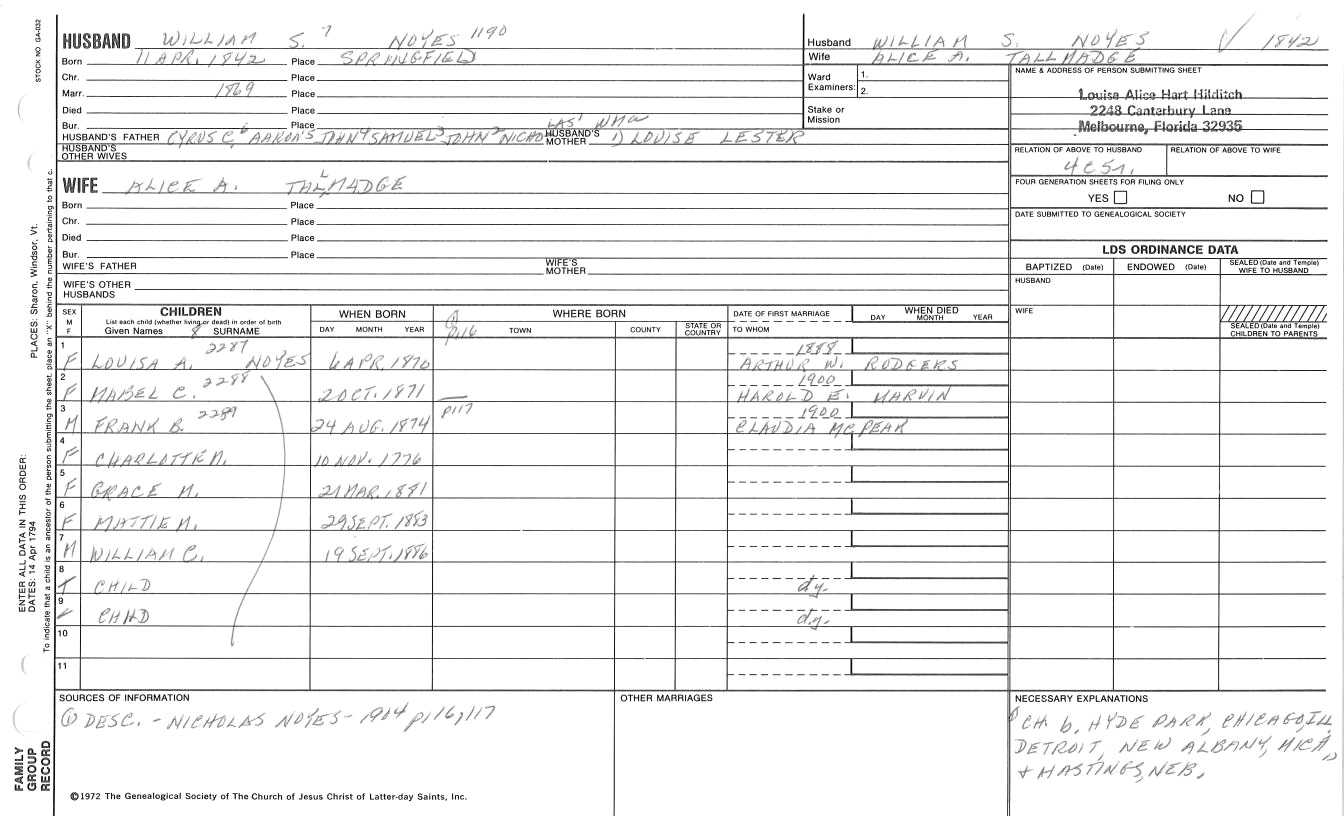 STOCK NO GA-032
HUSBAND WILLIAM S. 7 NOYES 1190
Born 11 APR. 1842 Place SPRINGFIELD
Chr. Place
Marr. 1869 Place
Died Place
Bur. Place
HUSBAND'S FATHER CYRUS C.6 AARON5 JOHN4 SAMUEL3 JOHN2 NICHOLAS1 WMa HUSBAND'S MOTHER 1) LOUISE LESTER
HUSBAND'S OTHER WIVES
Husband WILLIAM S. NOYES √ 1842
Wife ALICE A. TALLMADGE
Ward Examiners: 1.
2.
Stake or Mission
NAME & ADDRESS OF PERSON SUBMITTING SHEET
Louise Alice Hart Hilditch
2248 Canterbury Lane
Melbourne, Florida 32935
RELATION OF ABOVE TO HUSBAND RELATION OF ABOVE TO WIFE
4C5r.
FOUR GENERATION SHEETS FOR FILING ONLY
YES NO
DATE SUBMITTED TO GENEALOGICAL SOCIETY
WIFE ALICE A. TALLMADGE
Born Place
Chr. Place
Died Place
Bur. Place
WIFE'S FATHER WIFE'S MOTHER
WIFE'S OTHER HUSBANDS
LDS ORDINANCE DATA
BAPTIZED (Date) ENDOWED (Date) SEALED (Date and Temple) WIFE TO HUSBAND
HUSBAND
WIFE
SEALED (Date and Temple) CHILDREN TO PARENTS
SEX M F
CHILDREN
List each child (whether living or dead) in order of birth
Given Names 8 SURNAME
WHEN BORN
DAY MONTH YEAR
WHERE BORN
p116 TOWN COUNTY STATE OR COUNTRY
DATE OF FIRST MARRIAGE
TO WHOM
WHEN DIED
DAY MONTH YEAR
1 F LOUISA A. 2287 NOYES 6 APR. 1870 1888 ARTHUR W. RODGERS
2 F MABEL C. 2288 2 OCT. 1871 1900 HAROLD E. MARVIN
3 M FRANK B. 2289 24 AUG. 1874 p117 1900 CLAUDIA MCPEAK
4 F CHARLOTTE M. 10 NOV. 1776
5 F GRACE M. 21 MAR. 1881
6 F MATTIE M. 29 SEPT. 1883
7 M WILLIAM C. 19 SEPT. 1886
8 CHILD d.y.
9 CHILD d.y.
10
11
SOURCES OF INFORMATION
① DESC. - NICHOLAS NOYES - 1904 p116, 117
OTHER MARRIAGES
NECESSARY EXPLANATIONS
CH b. HYDE PARK, CHICAGO, ILL.
DETROIT, NEW ALBANY, MICH,
+ HASTINGS, NEB.
©1972 The Genealogical Society of The Church of Jesus Christ of Latter-day Saints, Inc.
PLACES: Sharon, Windsor, Vt.
ENTER ALL DATA IN THIS ORDER:
DATES: 14 Apr 1794
To indicate that a child is an ancestor of the person submitting the sheet, place an "X" behind the number pertaining to that c.
FAMILY GROUP RECORD